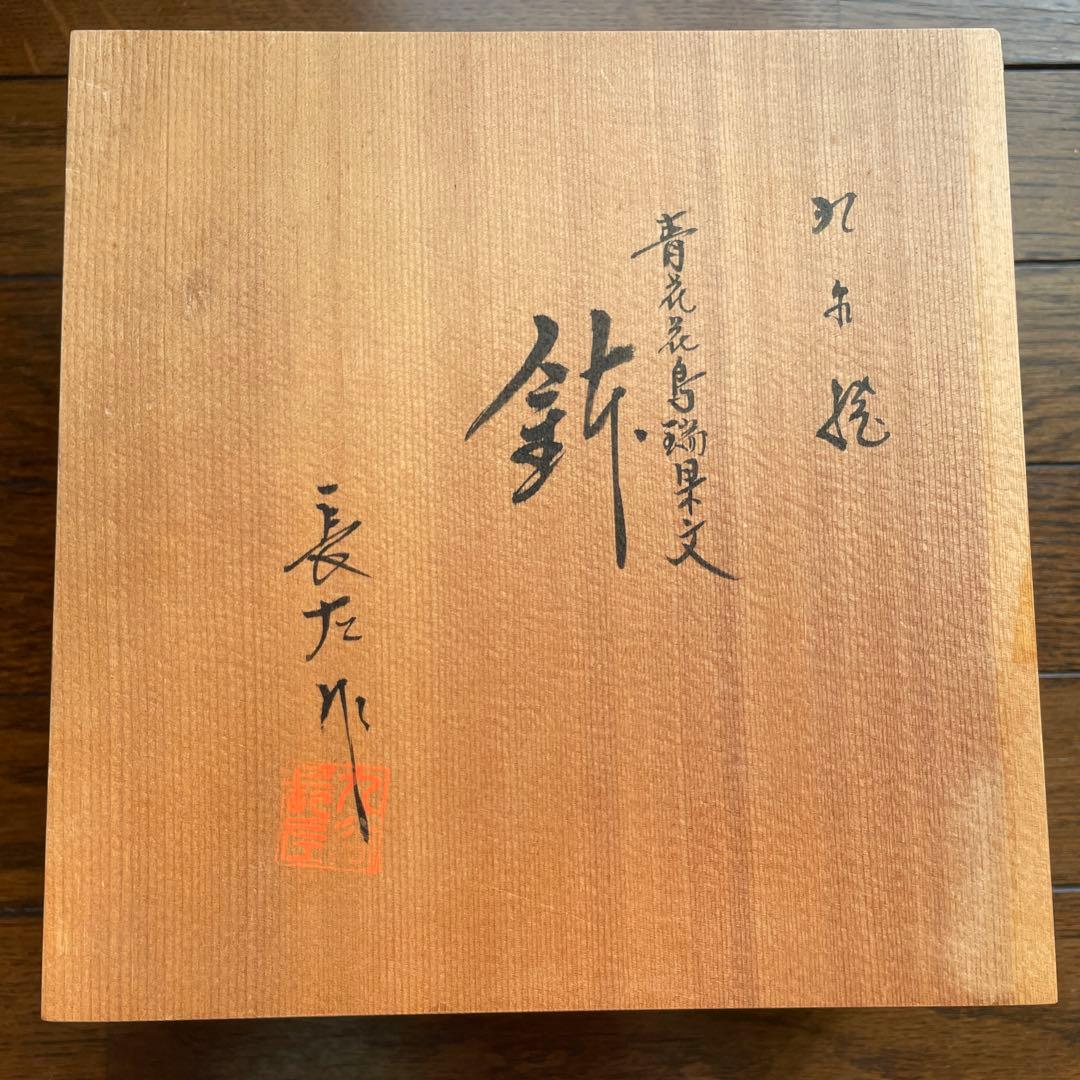 九谷焼
青花花鳥瑞果文
鉢
長左作